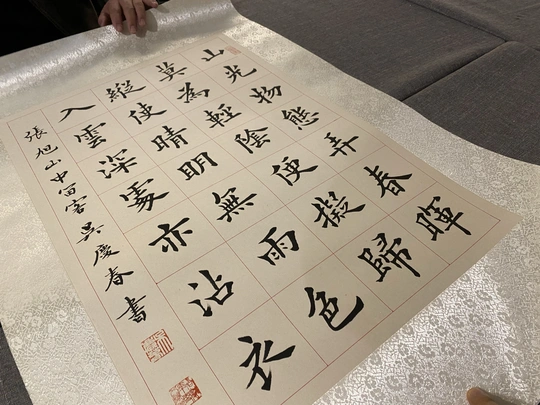 山光物態弄春暉
莫為輕陰便擬歸
縱使晴明無雨色
入雲深處亦沾衣
張旭山中留客 吳慶春書